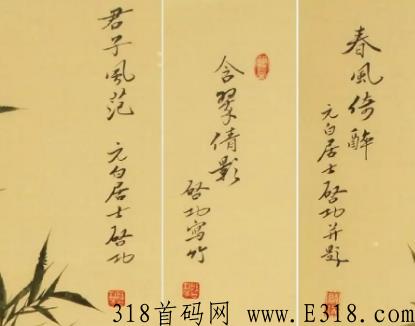 君子風范
元白居士啓功
含翠倩影
啓功寫竹
春風倚醉
元白居士啓功并題
318首码网 www.E318.com